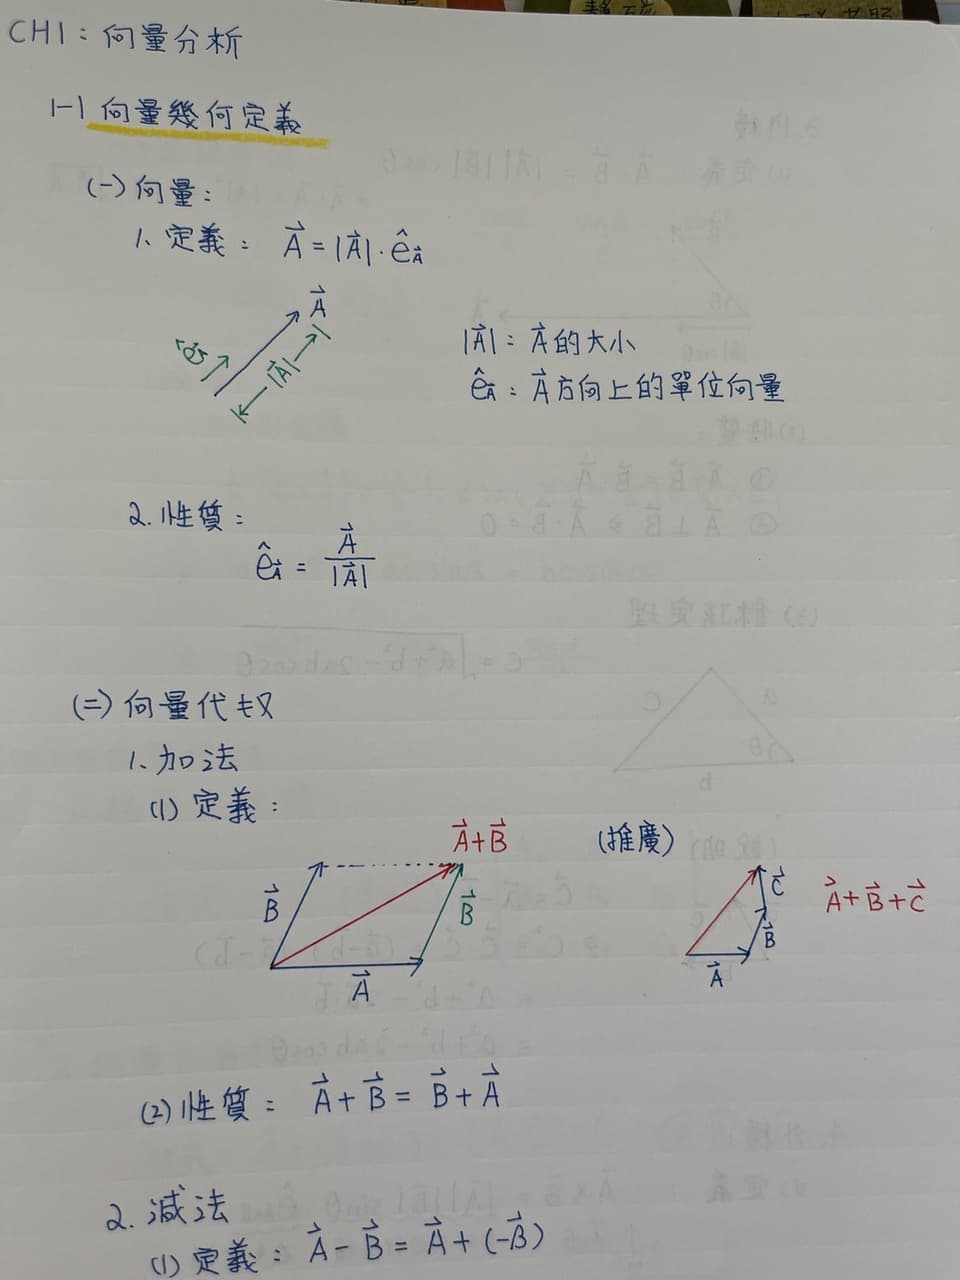 CH1：向量分析
1-1 向量幾何定義
(一) 向量：
1. 定義： A⃗ = |A⃗|·ê_A⃗
A⃗
ê
|A⃗|
|A⃗|：A⃗的大小
ê_A⃗：A⃗方向上的單位向量
2. 性質：
ê_A⃗ = A⃗/|A⃗|
(二) 向量代
1. 加法
(1) 定義：
A⃗+B⃗
(推廣)
B⃗
B⃗
A⃗
C⃗
B⃗
A⃗
A⃗+B⃗+C⃗
(2) 性質： A⃗+B⃗ = B⃗+A⃗
2. 減法
(1) 定義： A⃗-B⃗ = A⃗+(-B⃗)